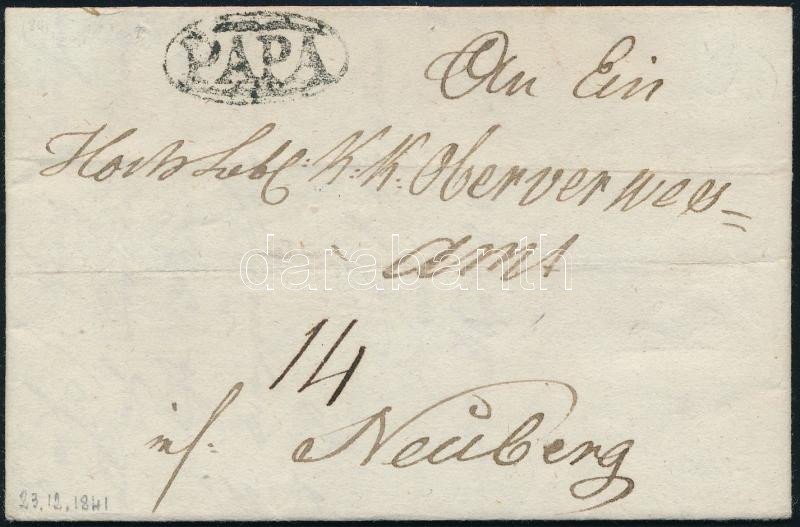 PÁPA
An Ein
Hochlöbl: K: K: Oberverwes=
amt
darabanth
14
in
Neuberg
23.12.1841